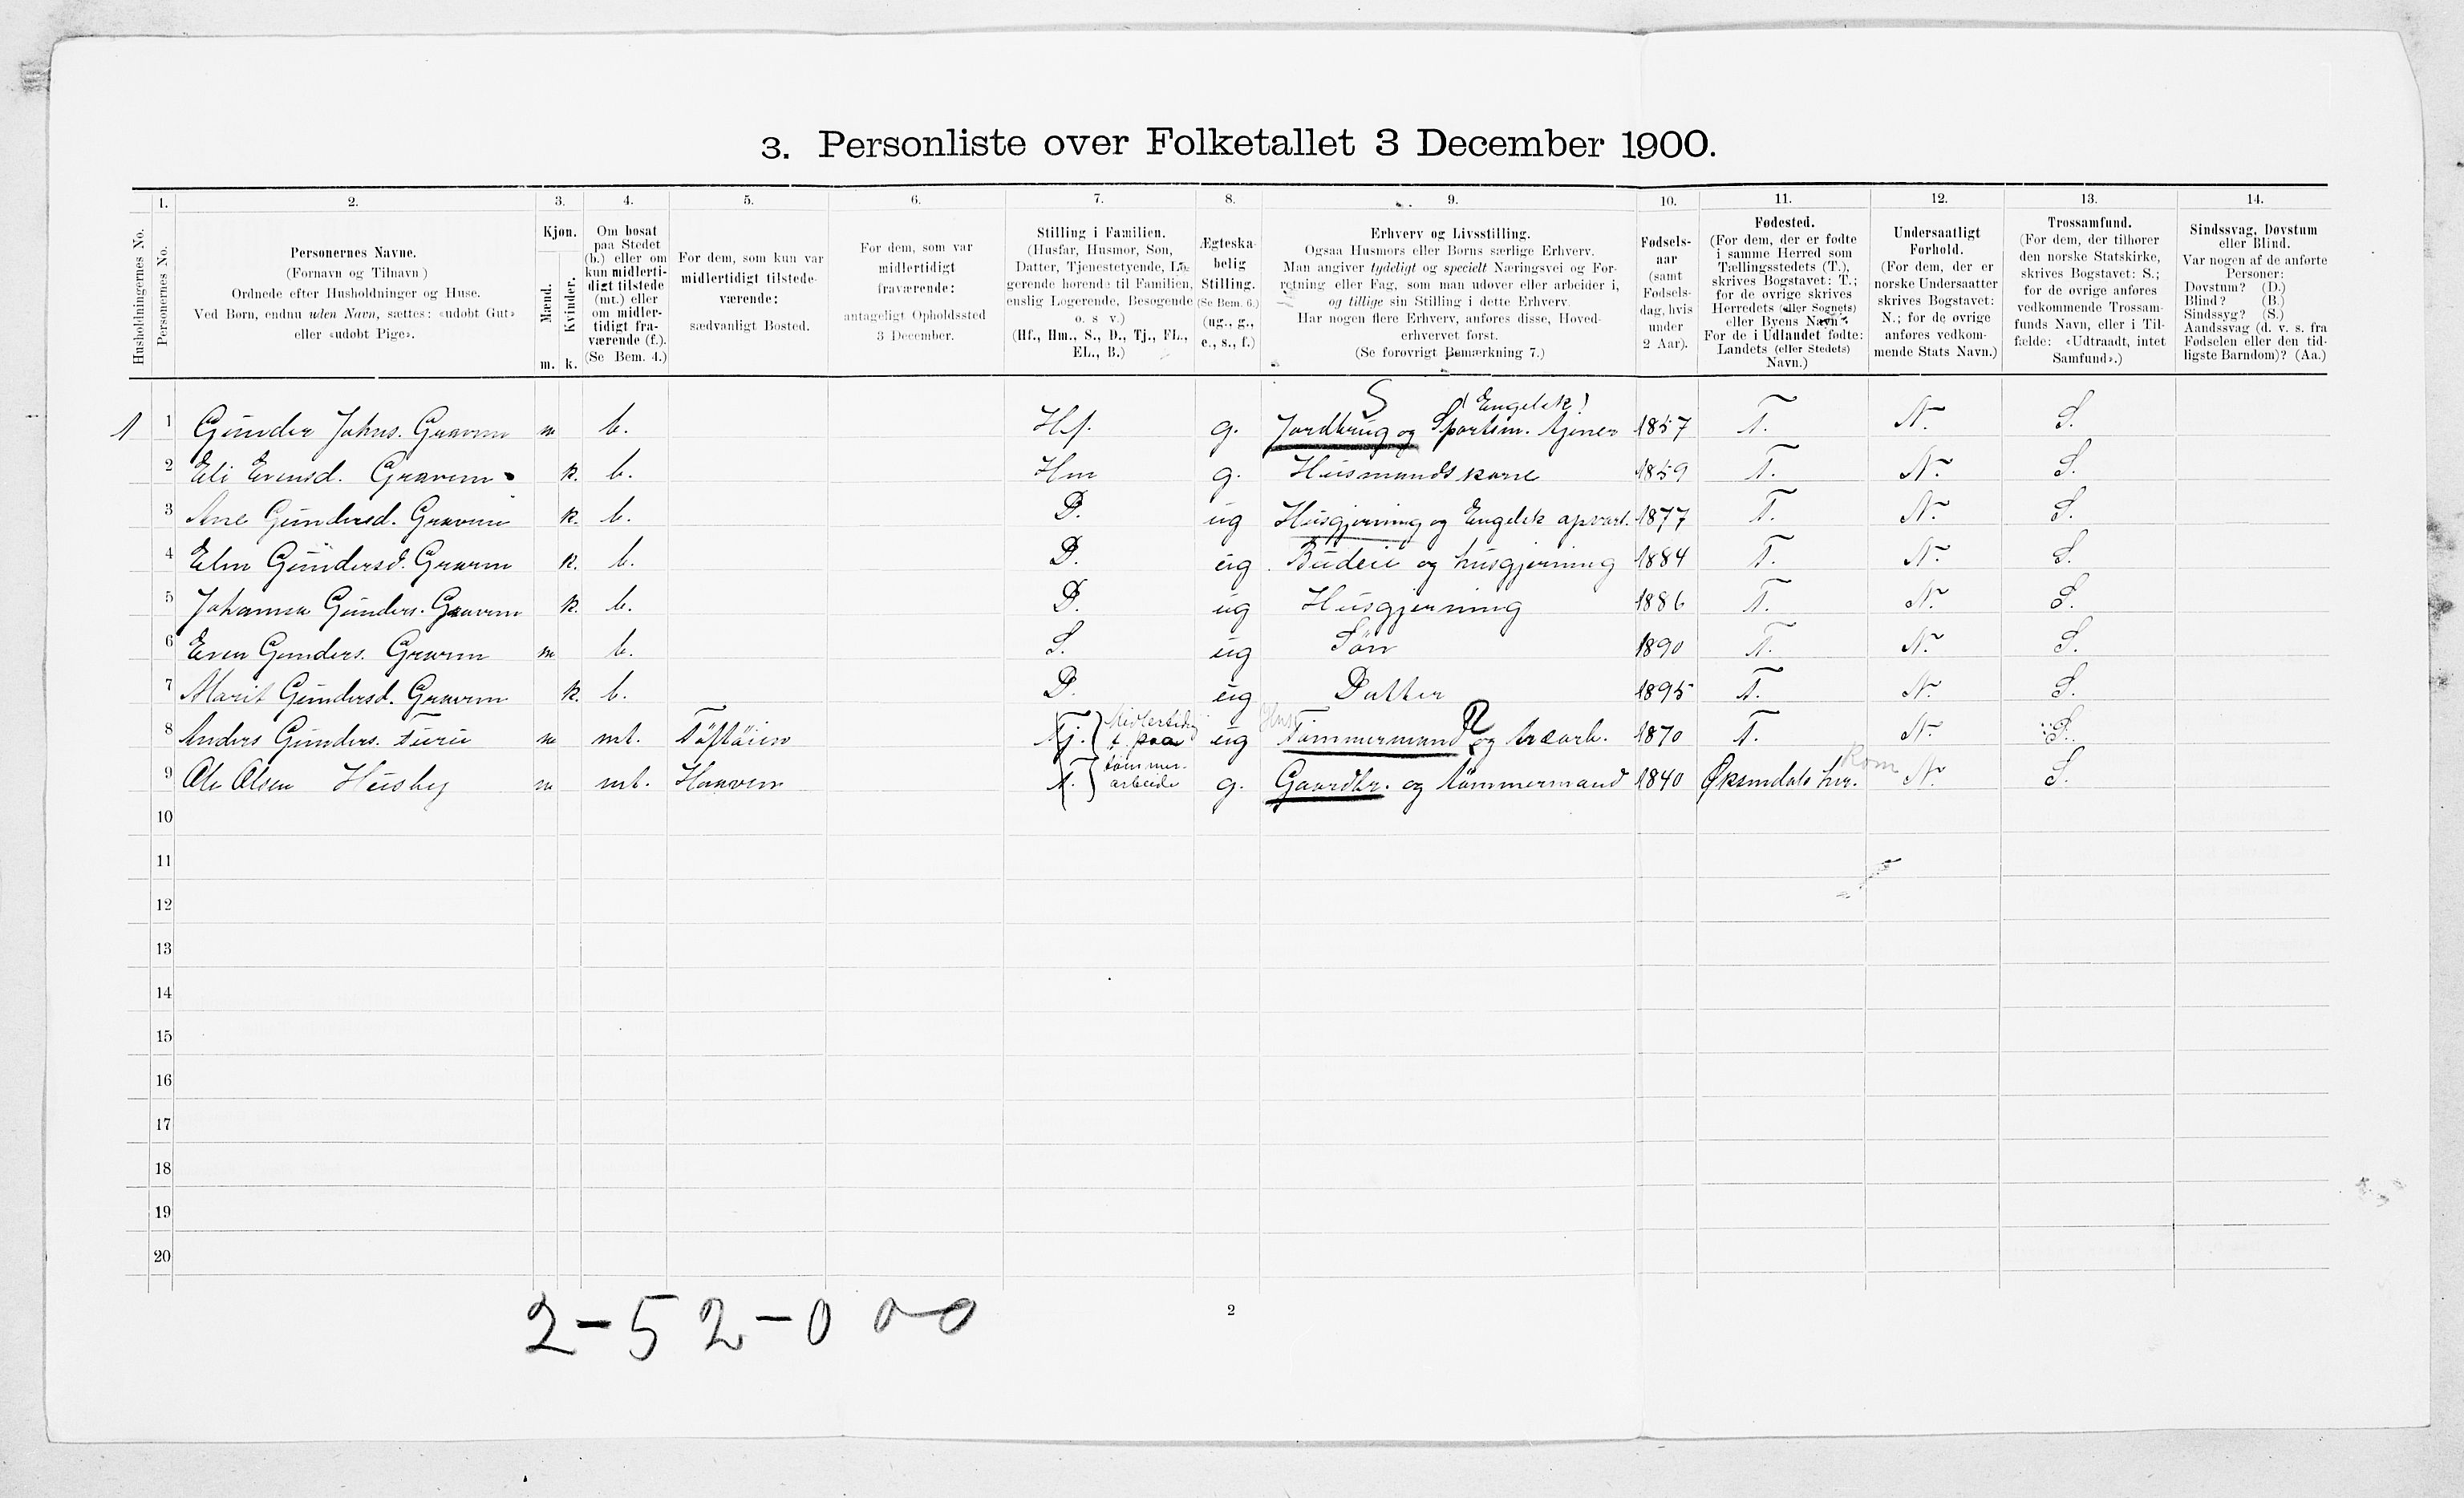 3. Personliste over Folketallet 3 December 1900.
Husholdningernes No.
1.
Personernes No.
2.
Personernes Navne.
(Fornavn og Tilnavn.)
Ordnede efter Husholdninger og Huse.
Ved Børn, endnu uden Navn, sættes: «udøbt Gut»
eller «udøbt Pige».
3.
Kjøn.
Mænd.
Kvinder.
m. k.
4.
Om bosat
paa Stedet
(b.) eller om
kun midlerti-
digt tilstede
(mt.) eller
om midler-
tidigt fra-
værende (f.).
(Se Bem. 4.)
5.
For dem, som kun var
midlertidigt tilstede-
værende:
sædvanligt Bosted.
6.
For dem, som var
midlertidigt
fraværende:
antageligt Opholdssted
3 December.
7.
Stilling i Familien.
(Husfar, Husmor, Søn,
Datter, Tjenestetyende, Lo-
gerende hørende til Familien,
enslig Logerende, Besøgende
o. s v.)
(Hf., Hm., S., D., Tj., FL.,
EL., B.)
8.
Ægteska-
belig
Stilling.
(Se Bem. 6.)
(ug., g.,
e., s., f.)
9.
Erhverv og Livsstilling.
Ogsaa Husmors eller Børns særlige Erhverv.
Man angiver tydeligt og specielt Næringsvei og For-
retning eller Fag, som man udøver eller arbeider i,
og tillige sin Stilling i dette Erhverv.
Har nogen flere Erhverv, anføres disse, Hoved-
erhvervet først.
(Se forøvrigt Bemærkning 7.)
10.
Fødsels-
aar
(samt
Fødsels-
dag, hvis
under
2 Aar).
11.
Fødested.
(For dem, der er fødte
i samme Herred som
Tællingsstedets (T.),
skrives Bogstavet: T.;
for de øvrige skrives
Herredets (eller Sognets)
eller Byens Navn.
For de i Udlandet fødte:
Landets (eller Stedets)
Navn.)
12.
Undersaatligt
Forhold.
(For dem, der er
norske Undersaatter
skrives Bogstavet:
N.; for de øvrige
anføres vedkom-
mende Stats Navn.)
13.
Trossamfund.
(For dem, der tilhører
den norske Statskirke,
skrives Bogstavet: S.;
for de øvrige anføres
vedkommende Trossam-
funds Navn, eller i Til-
fælde: «Udtraadt, intet
Samfund».)
14.
Sindssvag, Døvstum
eller Blind.
Var nogen af de anførte
Personer:
Døvstum? (D.)
Blind? (B.)
Sindssyg? (S.)
Aandssvag (d. v. s. fra
Fødselen eller den tid-
ligste Barndom)? (Aa.)
S (Engelsk)
1 1 Gunder Johns. Gravem m b. Hf. g. Jordbrug og Sportsm. tjener 1857 T. N. S.
2 Eli Evensd. Gravem k. b. Hm g. Husmandskone 1859 T. N. S.
3 Ane Gundersd. Gravem k. b. D. ug Husgjerning og Engelsk opvart. 1877 T. N. S.
4 Elen Gundersd. Gravem k. b. D. ug. Budeie og husgjerning 1884 T. N. S.
5 Johanna Gunders. Gravem k. b. D. ug Husgjerning 1886 T. N. S.
6 Even Gunders. Gravem m b. S. ug Sön 1890 T. N. S.
7 Marit Gundersd. Gravem k. b. D. ug Datter 1895 T. N. S.
8 Anders Gunders. Furu m mt. Töftöien Tj. Midlertidig t. paa ug Tömmermand og træarb. 1870 T. N. S.
9 Ole Olsen Husby m mt. Haaven T. tömmer-arbeide g. Gaardbr. og tömmermand 1840 Øksendals her. Rom N. S.
10
11
12
13
14
15
16
17
18
19
20
2-52-0 0-0
2